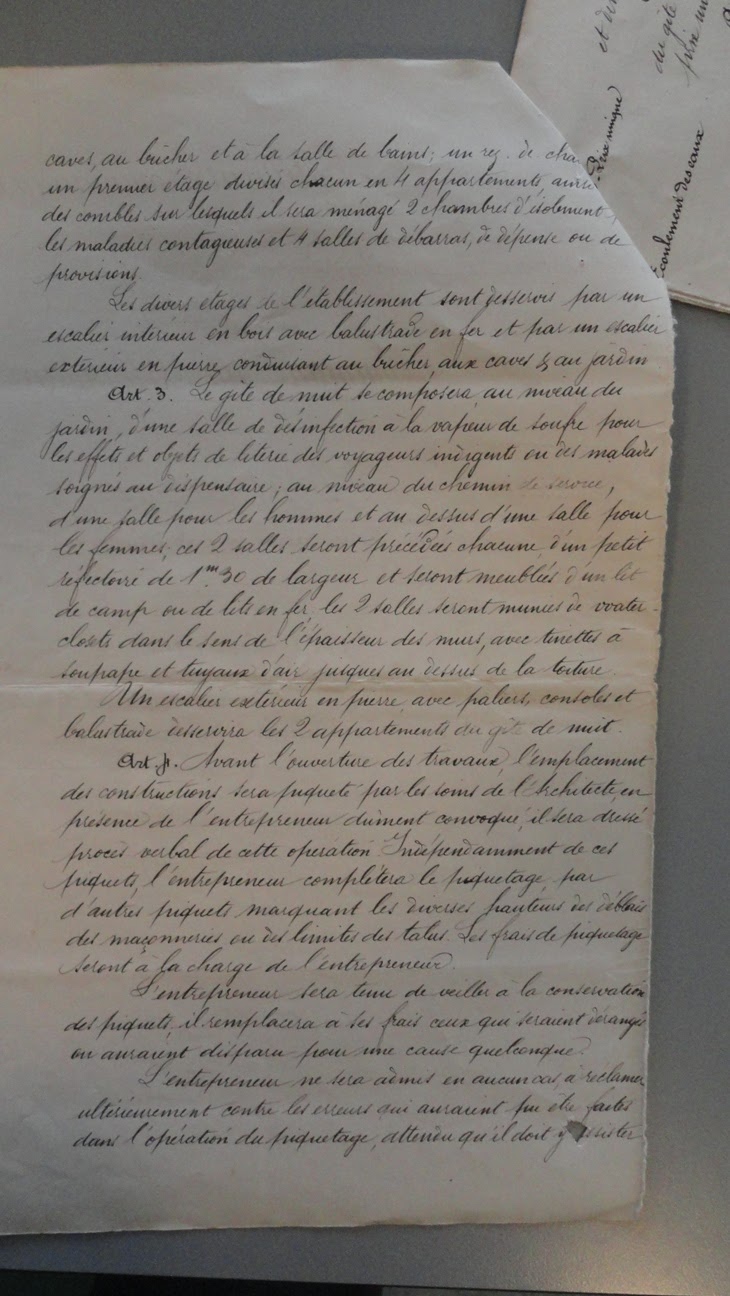 caves, au bûcher et à la salle de bains; un rez. de cha
un premier étage divisés chacun en 4 appartements, ainsi
des combles sur lesquels il sera ménagé 2 chambres d'isolement,
les maladies contagieuses et 4 salles de débarras, de dépense ou de
provisions.
Les divers étages de l'établissement sont desservis par un
escalier intérieur en bois avec balustrade en fer et par un escalier
extérieur en pierre, conduisant au bûcher, aux caves & au jardin
Art. 3. Le gîte de nuit se composera, au niveau du
jardin, d'une salle de désinfection à la vapeur de soufre pour
les effets et objets de literie des voyageurs indigents ou des malades
soignés au dispensaire; au niveau du chemin de service,
d'une salle pour les hommes et au dessus d'une salle pour
les femmes; ces 2 salles seront précédées chacune, d'un petit
réfectoire de 1m.30 de largeur et seront meublées d'un lit
de camp ou de lits en fer. les 2 salles seront munies de water-
closets dans le sens de l'épaisseur des murs, avec tinettes à
soupape et tuyaux d'air jusques au dessus de la toiture.
Un escalier extérieur en pierre, avec paliers, consoles et
balustrade desservira les 2 appartements du gîte de nuit.
Art. 4. Avant l'ouverture des travaux, l'emplacement
des constructions sera piqueté par les soins de l'Architecte, en
présence de l'entrepreneur dûment convoqué, il sera dressé
procès verbal de cette opération. Indépendamment de ces
piquets, l'entrepreneur complétera le piquetage par
d'autres piquets marquant les diverses hauteurs des déblais
des maçonneries ou des limites des talus. Les frais de piquetage
seront à la charge de l'entrepreneur.
L'entrepreneur sera tenu de veiller à la conservation
des piquets, il remplacera à ses frais ceux qui seraient dérangés
ou auraient disparu pour une cause quelconque.
L'entrepreneur ne sera admis en aucun cas, à réclamer
ultérieurement contre les erreurs qui auraient pu être faites
dans l'opération du piquetage, attendu qu'il doit y assister
Prix unique
et du
du gîte
Écoulement des eaux